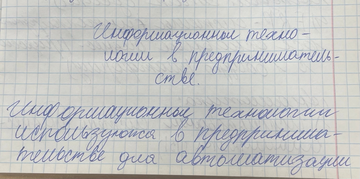 Информационные техно-
логии в предприниматель-
стве.
Информационные технологии
используются в предпринима-
тельстве для автоматизации